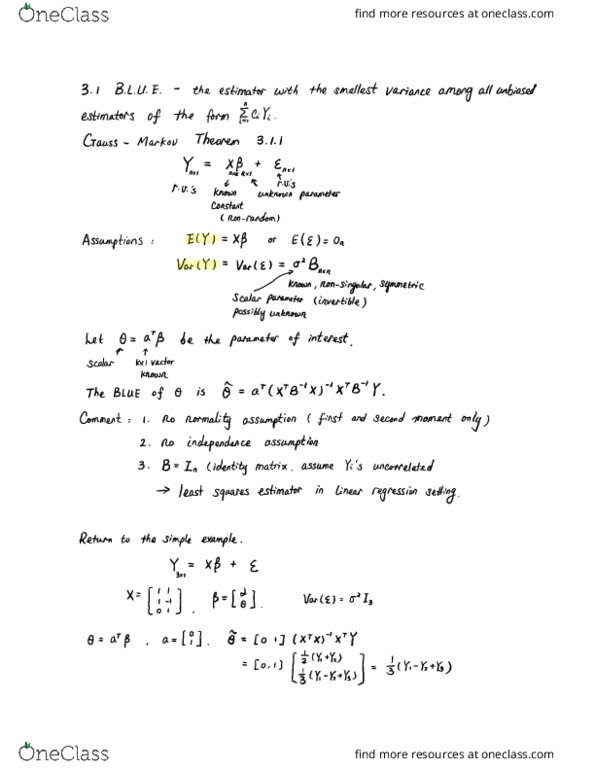 OneClass
find more resources at oneclass.com
3.1 B.L.U.E. - the estimator with the smallest variance among all unbiased
estimators of the form Σⁿᵢ₌₁ CᵢYᵢ.
Gauss - Markov Theorem 3.1.1
Yₙₓ₁ = Xₙₓₖ βₖₓ₁ + εₙₓ₁
r.v.'s known unknown parameter r.v.'s
constant
(non-random)
Assumptions : E(Y) = Xβ or E(ε) = 0ₙ
Var(Y) = Var(ε) = σ² Bₙₓₙ
known, non-singular, symmetric
scalar parameter (invertible)
possibly unknown
Let θ = aᵀβ be the parameter of interest.
scalar kx1 vector
known
The BLUE of θ is θ̂ = aᵀ(XᵀB⁻¹X)⁻¹XᵀB⁻¹Y.
Comment : 1. no normality assumption ( first and second moment only )
2. no independence assumption
3. B = Iₙ (identity matrix. assume Yi's uncorrelated
→ least squares estimator in linear regression setting.
Return to the simple example.
Y₃ₓ₁ = Xβ + ε
X = [1 1; 1 -1; 0 1] , β = [α; θ] . Var(ε) = σ² I₃
θ = aᵀβ , a = [0; 1] . θ̃ = [0 1] (XᵀX)⁻¹XᵀY
= [0, 1] [½(Y₁+Y₂); ⅓(Y₁-Y₂+Y₃)] = ⅓(Y₁-Y₂+Y₃)
OneClass
find more resources at oneclass.com